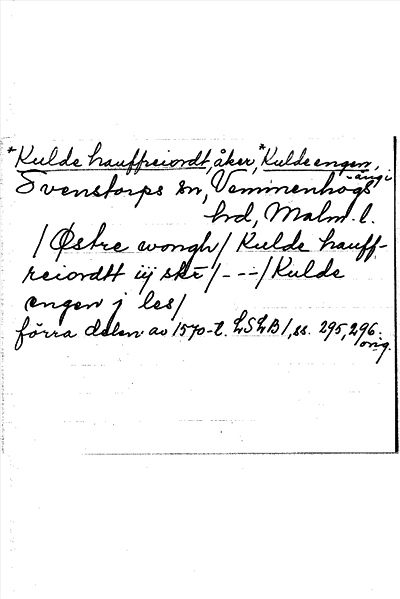 *Kulde hauffreiordt, åker, *Kulde engen,
äng i
Svenstorps sn, Vemmenhögs
hd, Malm. l.
/ Østre wongh / Kulde hauff-
reiordtt iij ske / --- / Kulde
engen j les /
förra delen av 1570-t. LSLB 1, ss. 295, 296.
orig.